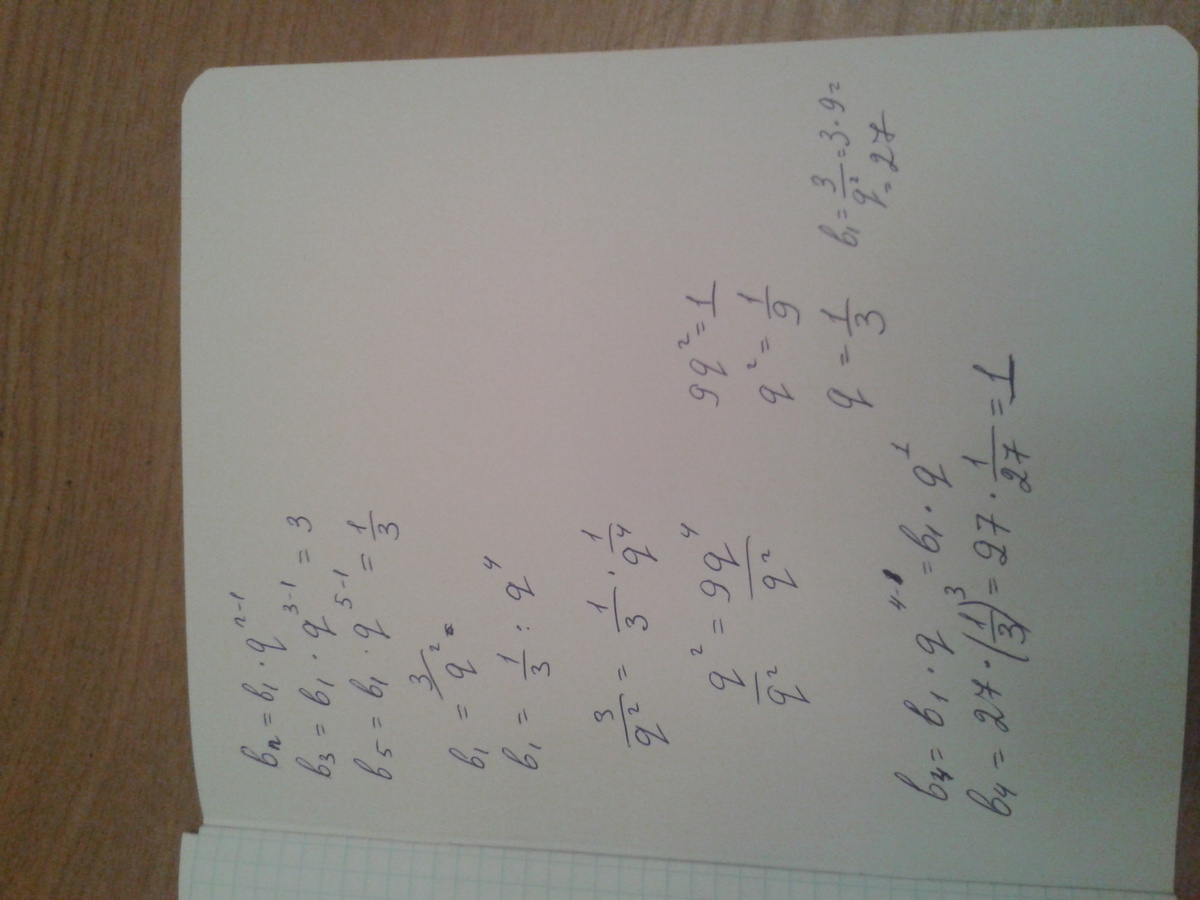 bₙ = b₁ · qⁿ⁻¹
b₃ = b₁ · q³⁻¹ = 3
b₅ = b₁ · q⁵⁻¹ = 1/3
b₁ = 3/q²
b₁ = 1/3 : q⁴
3/q² = 1/3 · 1/q⁴
q²/q² = 9q⁴/q²
9q² = 1
q² = 1/9
q = 1/3
b₁ = 3/q² = 3·9 =
= 27
b₄ = b₁ · q⁴⁻¹ = b₁ · q¹
b₄ = 27 · (1/3)³ = 27 · 1/27 = 1